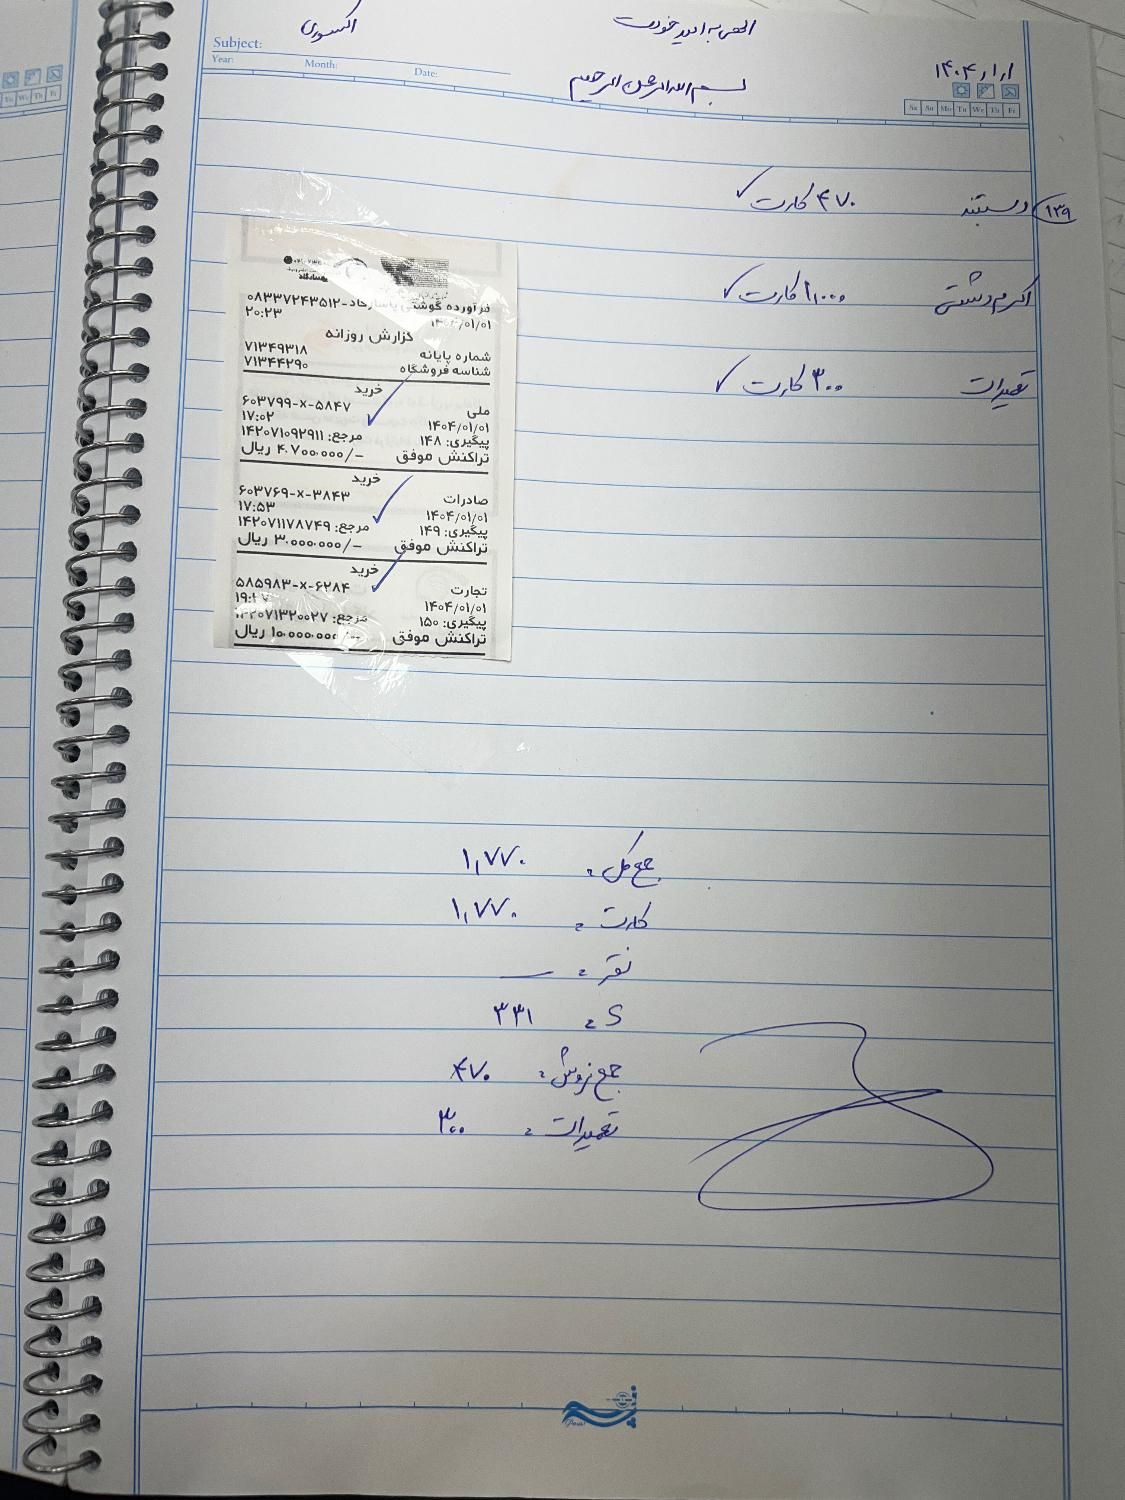 الهی به امید خودت
اکسوری
Subject:
Year: Month: Date:
بسم الله الرحمن الرحیم
۱۴۰۴/۱/۱
Sa Su Mo Tu We Th Fr
۱۳۹ دستبند ۴۷۰ کارت ✓
اکرم دشتی ۱,۰۰۰ کارت ✓
تعمیرات ۳۰۰ کارت ✓
فرآورده گوشتی پاسارگاد-۰۸۳۳۷۲۴۳۵۱۲
۱۴۰۴/۰۱/۰۱ ۲۰:۲۳
گزارش روزانه
شماره پایانه ۷۱۳۴۹۳۱۸
شناسه فروشگاه ۷۱۳۴۴۲۹۰
خرید
ملی ۶۰۳۷۹۹-x-۵۸۴۷
۱۴۰۴/۰۱/۰۱ ۱۷:۰۲
پیگیری: ۱۴۸ مرجع: ۱۴۲۰۷۱۰۹۲۹۱۱
تراکنش موفق ۴.۷۰۰.۰۰۰/- ریال
خرید
صادرات ۶۰۳۷۶۹-x-۳۸۴۳
۱۴۰۴/۰۱/۰۱ ۱۷:۵۳
پیگیری: ۱۴۹ مرجع: ۱۴۲۰۷۱۱۷۸۷۴۹
تراکنش موفق ۳.۰۰۰.۰۰۰/- ریال
خرید
تجارت ۵۸۵۹۸۳-x-۶۲۸۴
۱۴۰۴/۰۱/۰۱
پیگیری: ۱۵۰ مرجع: ۱۴۲۰۷۱۳۲۰۰۲۷
تراکنش موفق ۱۰.۰۰۰.۰۰۰/- ریال
جمع کل: ۱,۷۷۰
کارت: ۱,۷۷۰
نقد: —
S: ۳۳۱
جمع فروش: ۴۷۰
تعمیرات: ۳۰۰